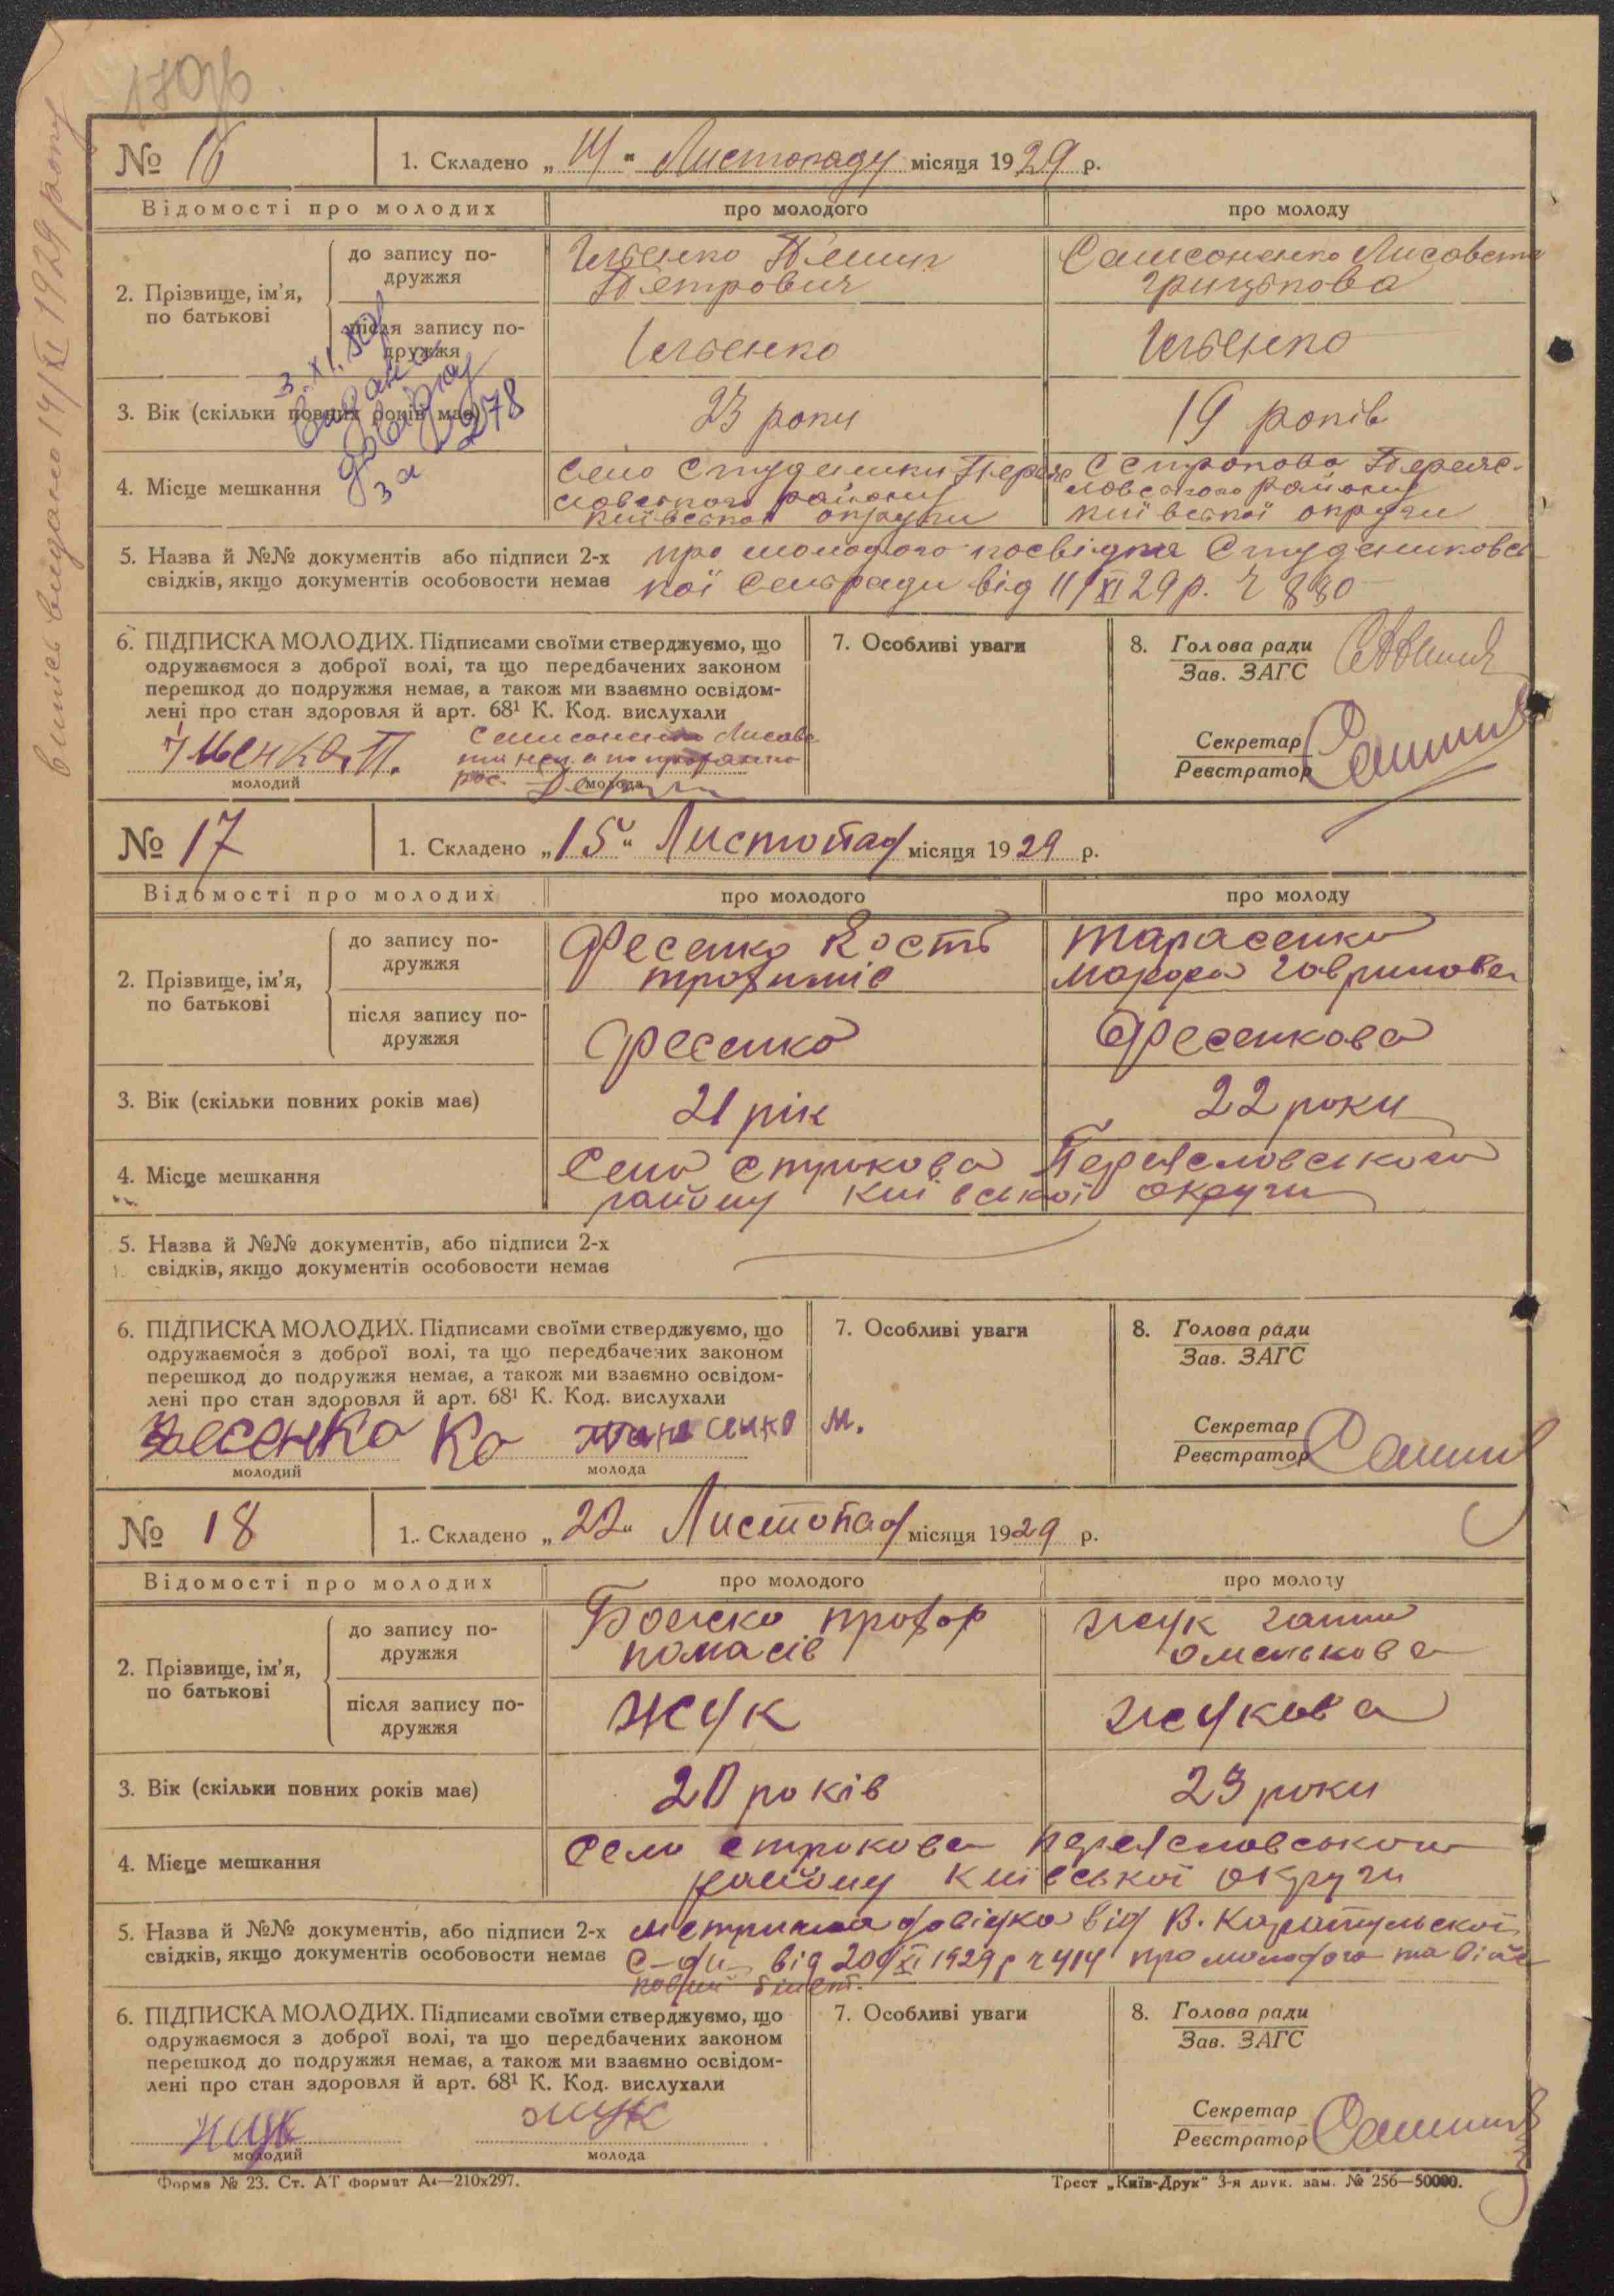 випись видано 14/XI 1929 року
№ 16
1. Складено „14“ Листопаду місяця 1929 р.
Відомості про молодих
про молодого
про молоду
2. Прізвище, ім’я, по батькові
до запису подружжя
Ильенко
Петрович
Самсоненко Лисовета
Грицькова
після запису подружжя
Ильенко
Ильенко
3. Вік (скільки повних років має)
23 роки
19 років
видана
довідка
за 278
4. Місце мешкання
Село Студеники Переяс
ловського району
київської округи
С Строкова Переяс-
ловського району
київської округи
5. Назва й №№ документів або підписи 2-х
свідків, якщо документів особовости немає
про молодого посвідка Студениковсь
кої Сельради від 11/XI 29 р. Ч 880
6. ПІДПИСКА МОЛОДИХ. Підписами своїми стверджуємо, що
одружаємося з доброї волі, та що передбачених законом
перешкод до подружжя немає, а також ми взаємно освідом-
лені про стан здоровля й арт. 68¹ К. Код. вислухали
Самсоненко Лисове
молодий
молода
7. Особливі уваги
8. Голова ради
Зав. ЗАГС
Секретар
Реєстратор
№ 17
1. Складено „15“ Листопад місяця 1929 р.
Відомості про молодих
про молодого
про молоду
2. Прізвище, ім’я, по батькові
до запису подружжя
Фесенко Кость
трохимів
Тарасенко
гаврилова
після запису подружжя
Фесенко
Фесенкова
3. Вік (скільки повних років має)
21 рік
22 роки
4. Місце мешкання
Село Строкова Переясловського
району київської округи
5. Назва й №№ документів, або підписи 2-х
свідків, якщо документів особовости немає
6. ПІДПИСКА МОЛОДИХ. Підписами своїми стверджуємо, що
одружаємося з доброї волі, та що передбачених законом
перешкод до подружжя немає, а також ми взаємно освідом-
лені про стан здоровля й арт. 68¹ К. Код. вислухали
Фесенко Ко Тарасенко М.
молодий
молода
7. Особливі уваги
8. Голова ради
Зав. ЗАГС
Секретар
Реєстратор
№ 18
1. Складено „22“ Листопад місяця 1929 р.
Відомості про молодих
про молодого
про молоду
2. Прізвище, ім’я, по батькові
до запису подружжя
прохор
панасів
жук ганна
омелькова
після запису подружжя
Жук
жукова
3. Вік (скільки повних років має)
20 років
23 роки
4. Місце мешкання
Село Строкова переясловського
району київської округи
5. Назва й №№ документів, або підписи 2-х
свідків, якщо документів особовости немає
метрична довідка від В. Каратульської
С-ди від 20/XI 1929 р ч 414 про молодого та війс
ковий білет.
6. ПІДПИСКА МОЛОДИХ. Підписами своїми стверджуємо, що
одружаємося з доброї волі, та що передбачених законом
перешкод до подружжя немає, а також ми взаємно освідом-
лені про стан здоровля й арт. 68¹ К. Код. вислухали
жук
жук
молодий
молода
7. Особливі уваги
8. Голова ради
Зав. ЗАГС
Секретар
Реєстратор
Форма № 23. Ст. АТ формат А4—210х297.
Трест „Київ-Друк“ 3-я друк. зам. № 256—50000.